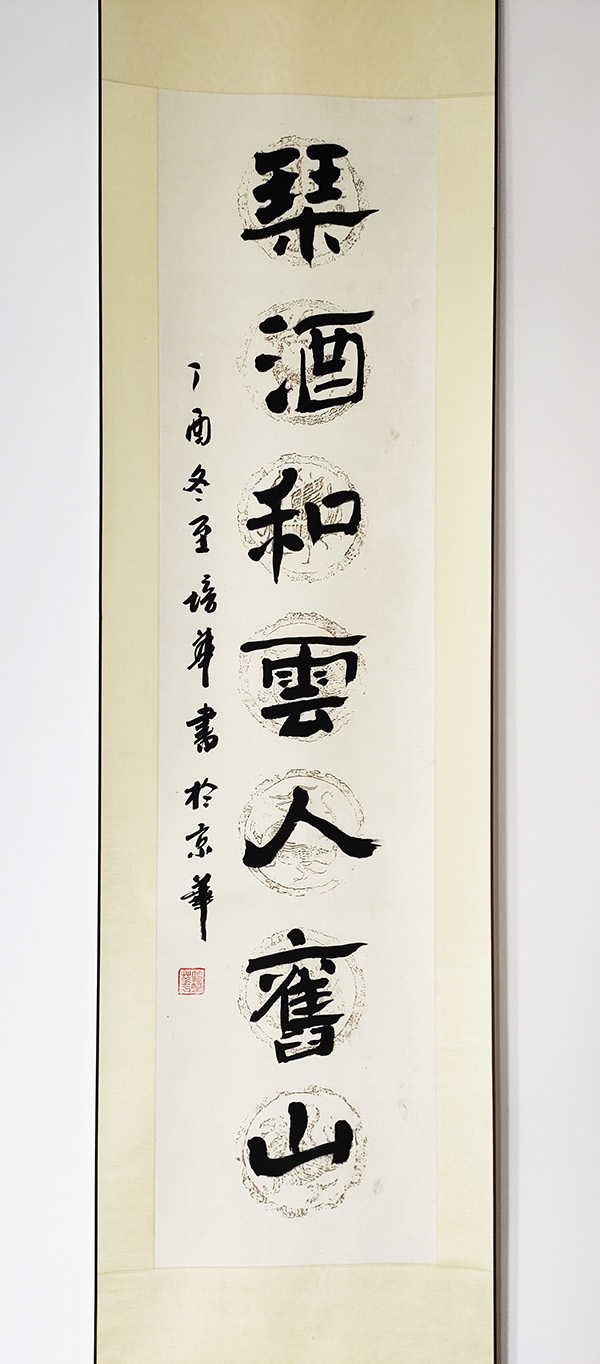 琹酒和雲人舊山
丁酉冬至培華書於京華